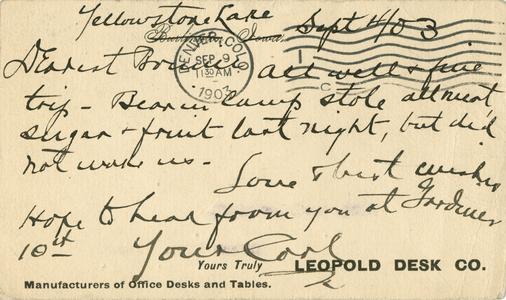 Yellowstone Lake
Sept 4/03
Burlington, Iowa
DENVER, COLO.
SEP 9
1130 AM
1903
Dearest all well & fine
trip - Bear in camp stole all meat,
sugar & fruit last night, but did
not wake us -
Love & best wishes
Hope to hear from you at Gardiner
10th Your Carl
Yours Truly LEOPOLD DESK CO.
Manufacturers of Office Desks and Tables.